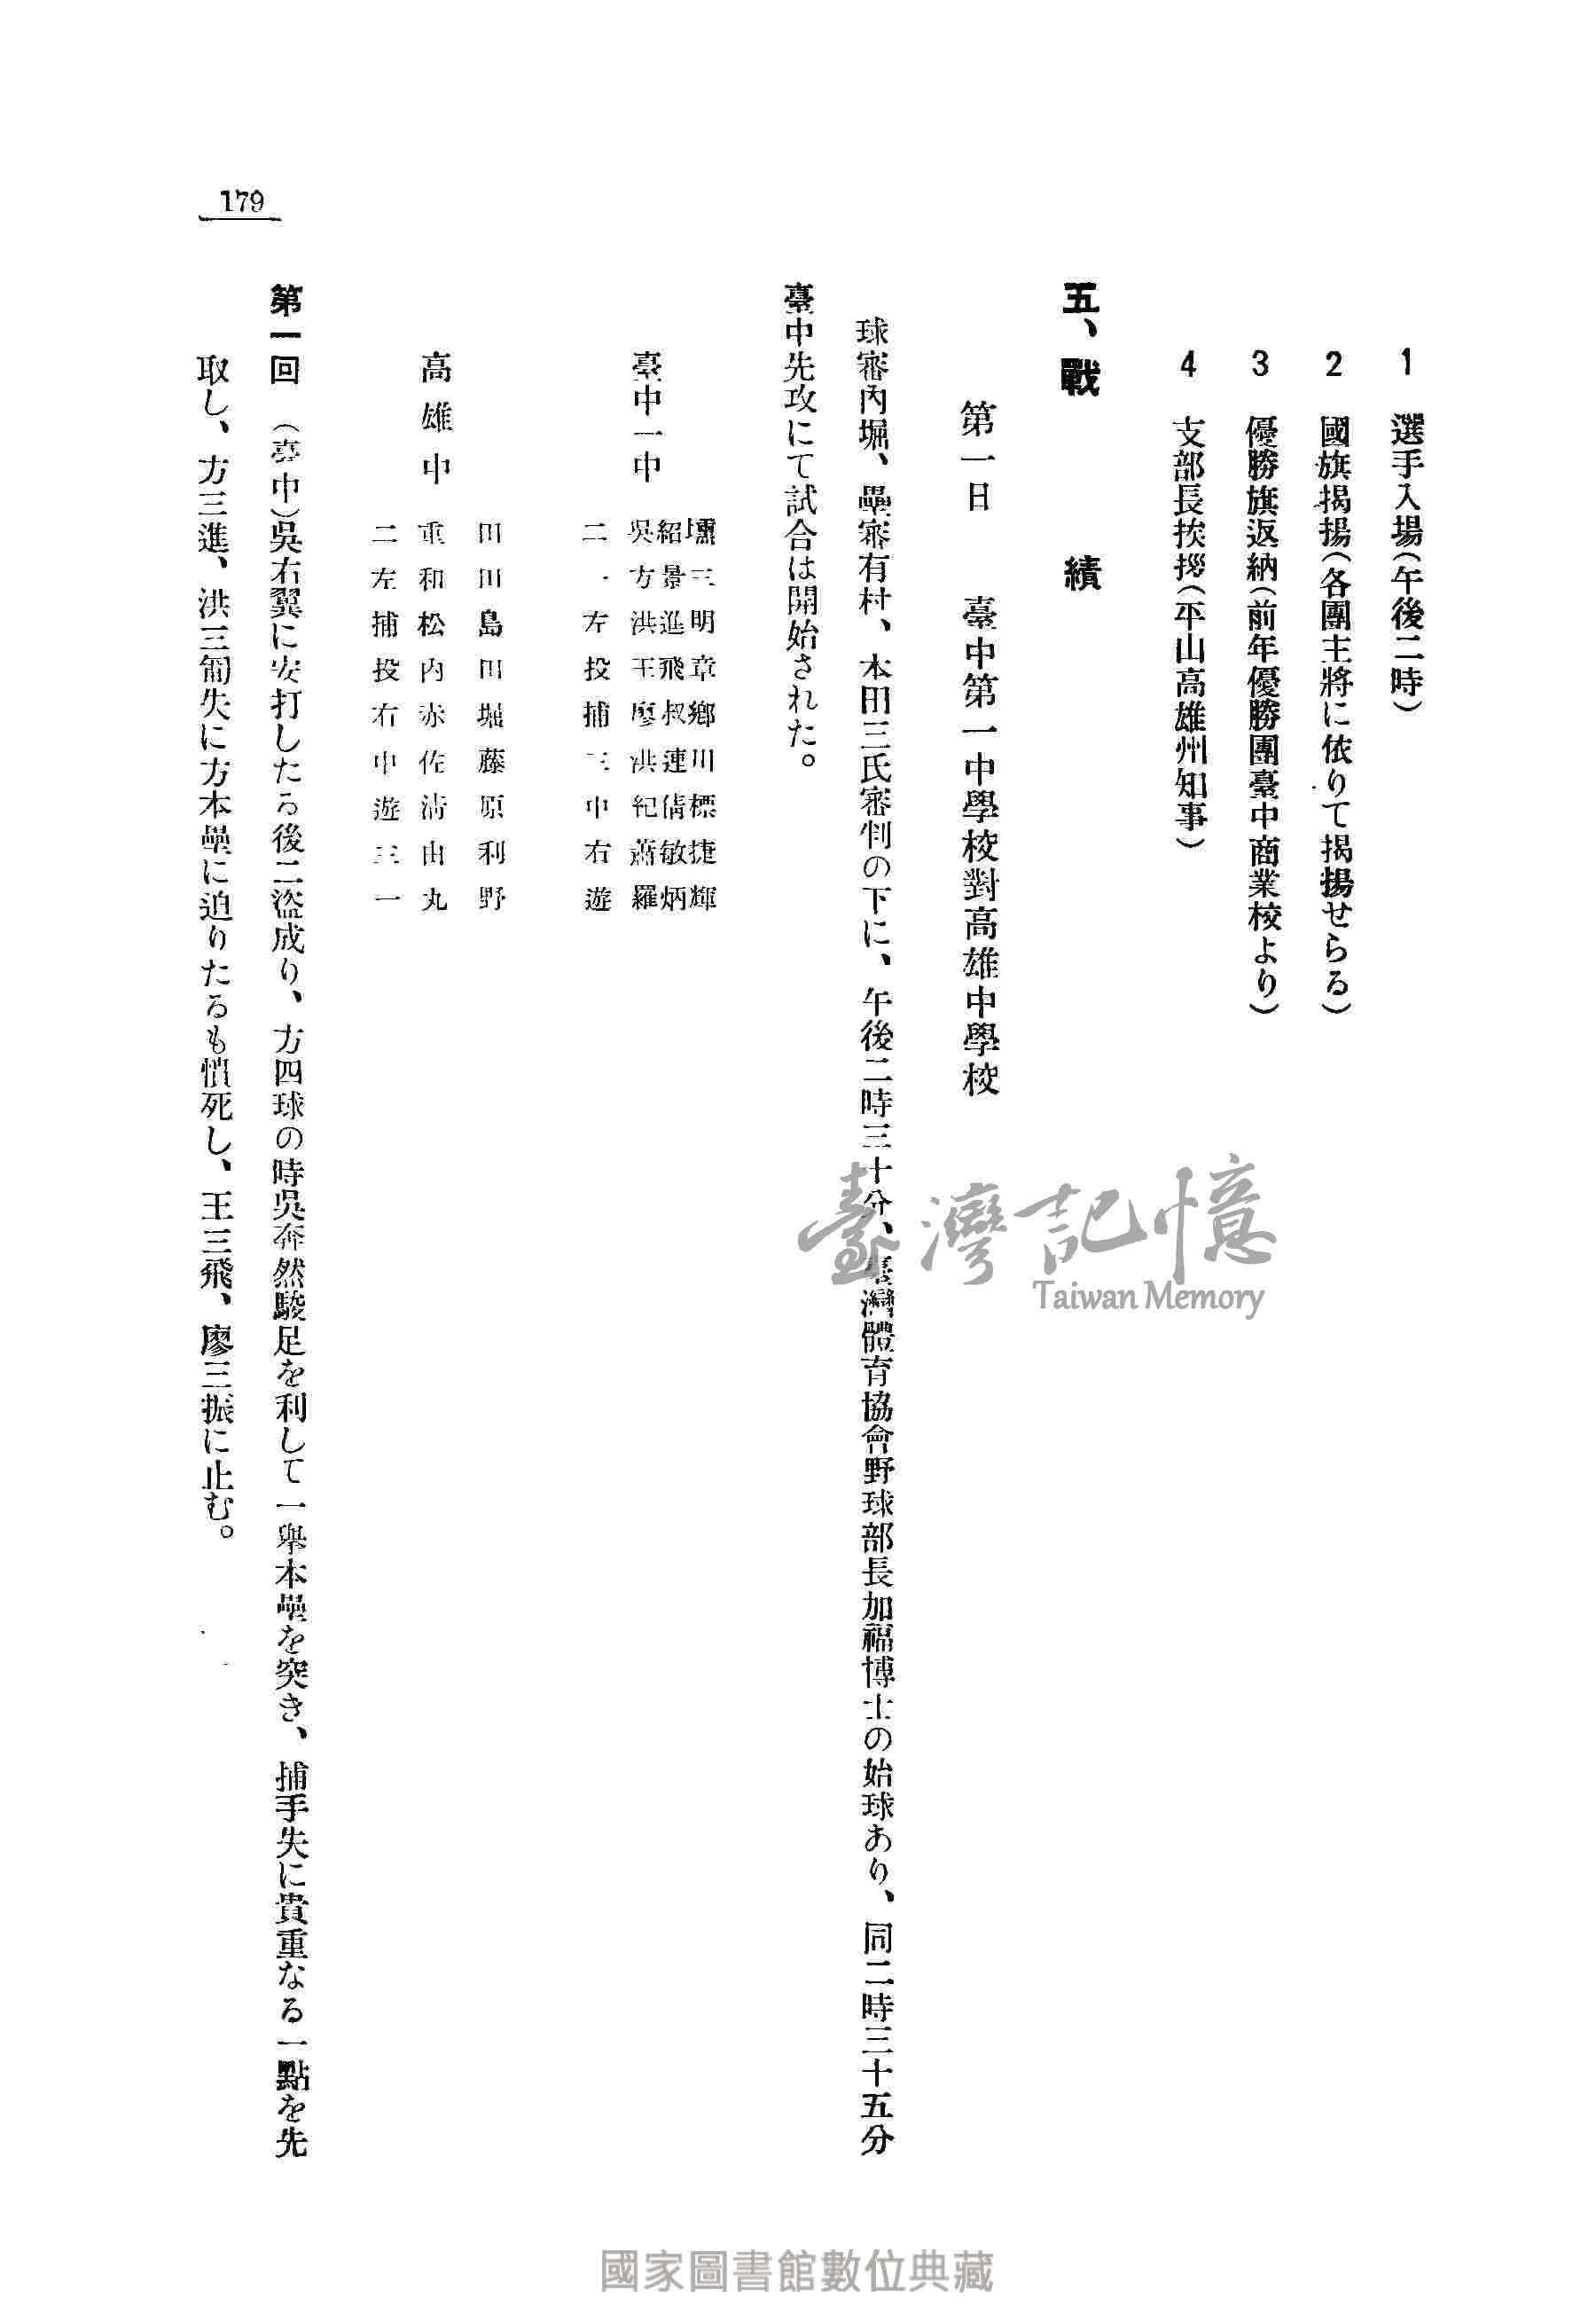 179
1 選手入場(午後二時)
2 國旗揭揚(各團主將に依りて揭揚せらる)
3 優勝旗返納(前年優勝團臺中商業校より)
4 支部長挨拶(平山高雄州知事)
五、戰 績
第一日 臺中第一中學校對高雄中學校
球審內堀、壘審有村、本田三氏審判の下に、午後二時三十分、臺灣體育協會野球部長加福博士の始球あり、同二時三十五分
臺中先攻にて試合は開始された。
壎三明章鄉川標捷輝
紹景進飛叔連倩敏炳
臺中一中 吳方洪王廖洪紀蕭羅
二一左投捕三中右遊
田田島田堀藤原利野
高雄中 重和松內赤佐淸由丸
二左捕投右中遊三一
第一回 (臺中)吳右翼に安打したる後二盜成り、方四球の時吳奔然駿足を利して一擧本壘を突き、捕手失に貴重なる一點を先
取し、方三進、洪三匍失に方本壘に迫りたるも憤死し、王三飛、廖三振に止む。
臺灣記憶
Taiwan Memory
國家圖書館數位典藏